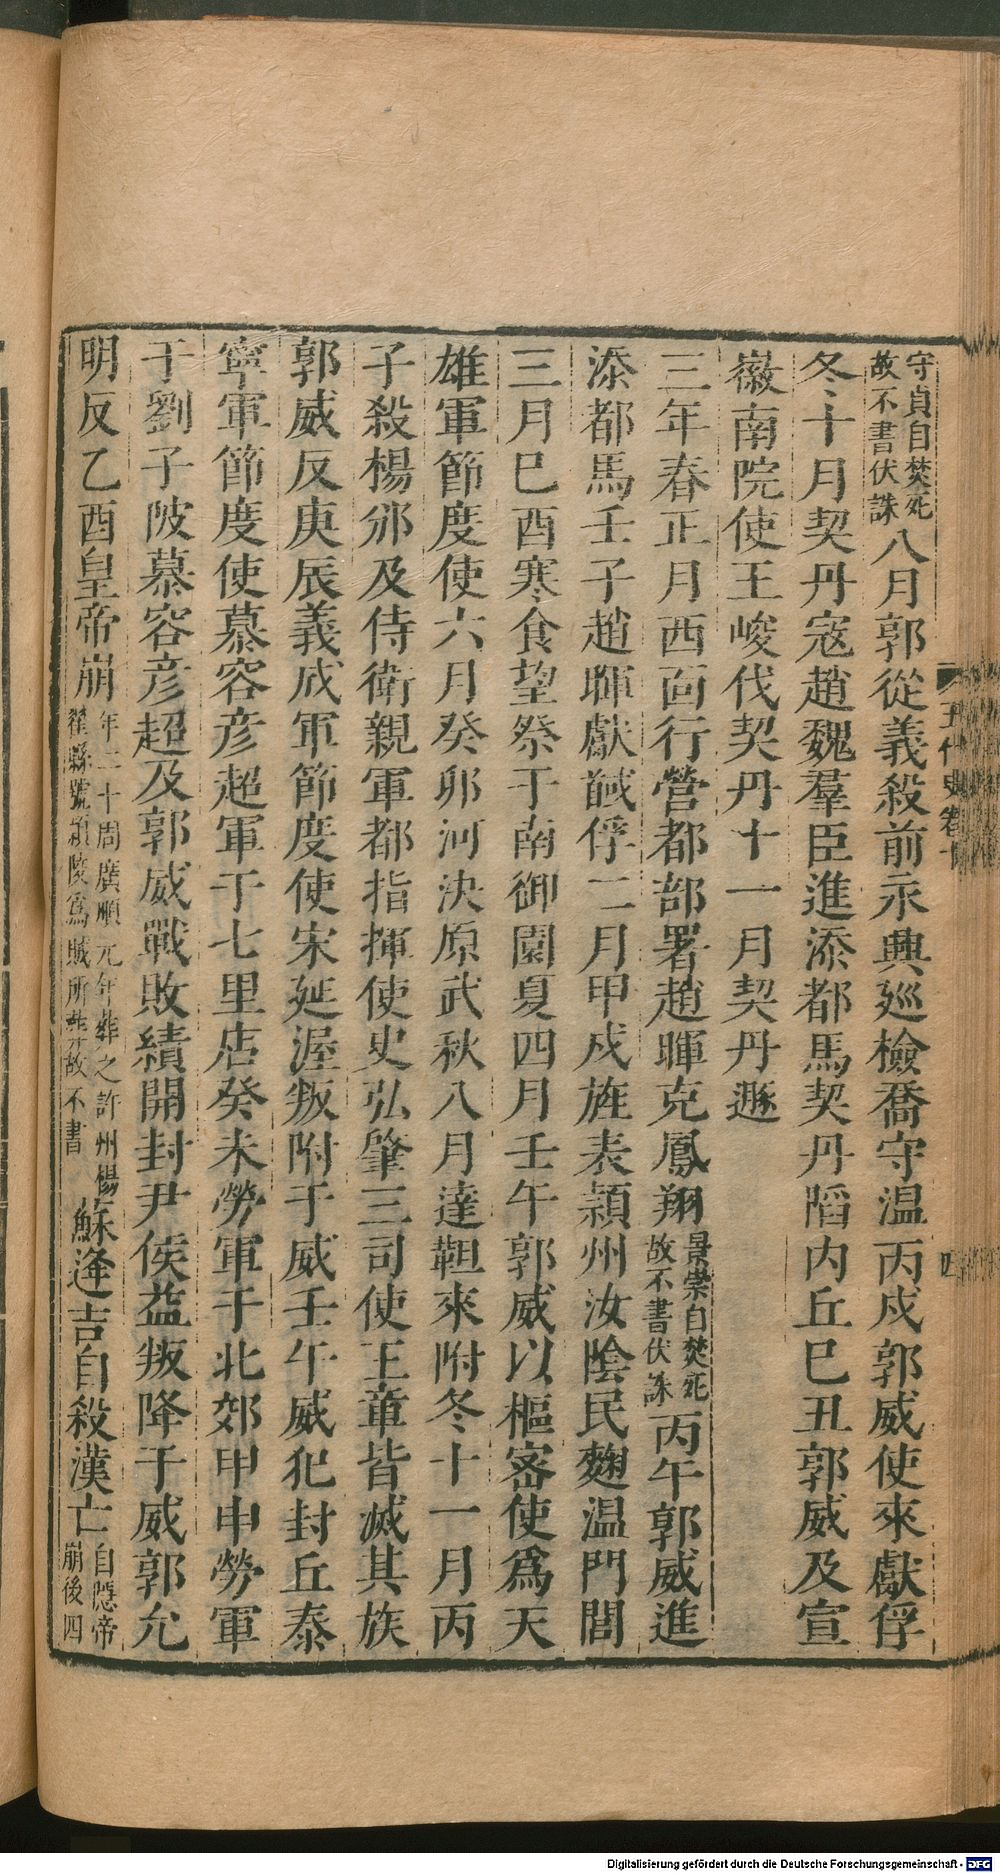 守貞自焚死故不書伏誅八月郭從義殺前永興巡檢喬守温丙戍郭威使來獻俘
冬十月契丹寇趙魏羣臣進添都馬契丹䧟内丘巳丑郭威及宣
徽南院使王峻伐契丹十一月契丹遯
三年春正月西面行營都部署趙暉克鳳翔景崇自焚死故不書伏誅丙午郭威進
添都馬壬子趙暉獻馘俘二月甲戍旌表潁州汝陰民麴温門閭
三月巳酉寒食望祭于南御園夏四月壬午郭威以樞密使爲天
雄軍節度使六月癸卯河決原武秋八月達靼來附冬十一月丙
子殺楊邠及侍衛親軍都指揮使史弘肇三司使王章皆滅其族
郭威反庚辰義成軍節度使宋延渥叛附于威壬午威犯封丘泰
寧軍節度使慕容彦超軍于七里店癸未勞軍于北郊甲申勞軍
于劉子陂慕容彦超及郭威戰敗績開封尹侯益叛降于威郭允
明反乙酉皇帝崩年二十周廣順元年葬之許州楊翟縣號潁陵爲賊所葬故不書蘇逢吉自殺漢亡自隱帝崩後四
五代史卷十
四
Digitalisierung gefördert durch die Deutsche Forschungsgemeinschaft - DFG